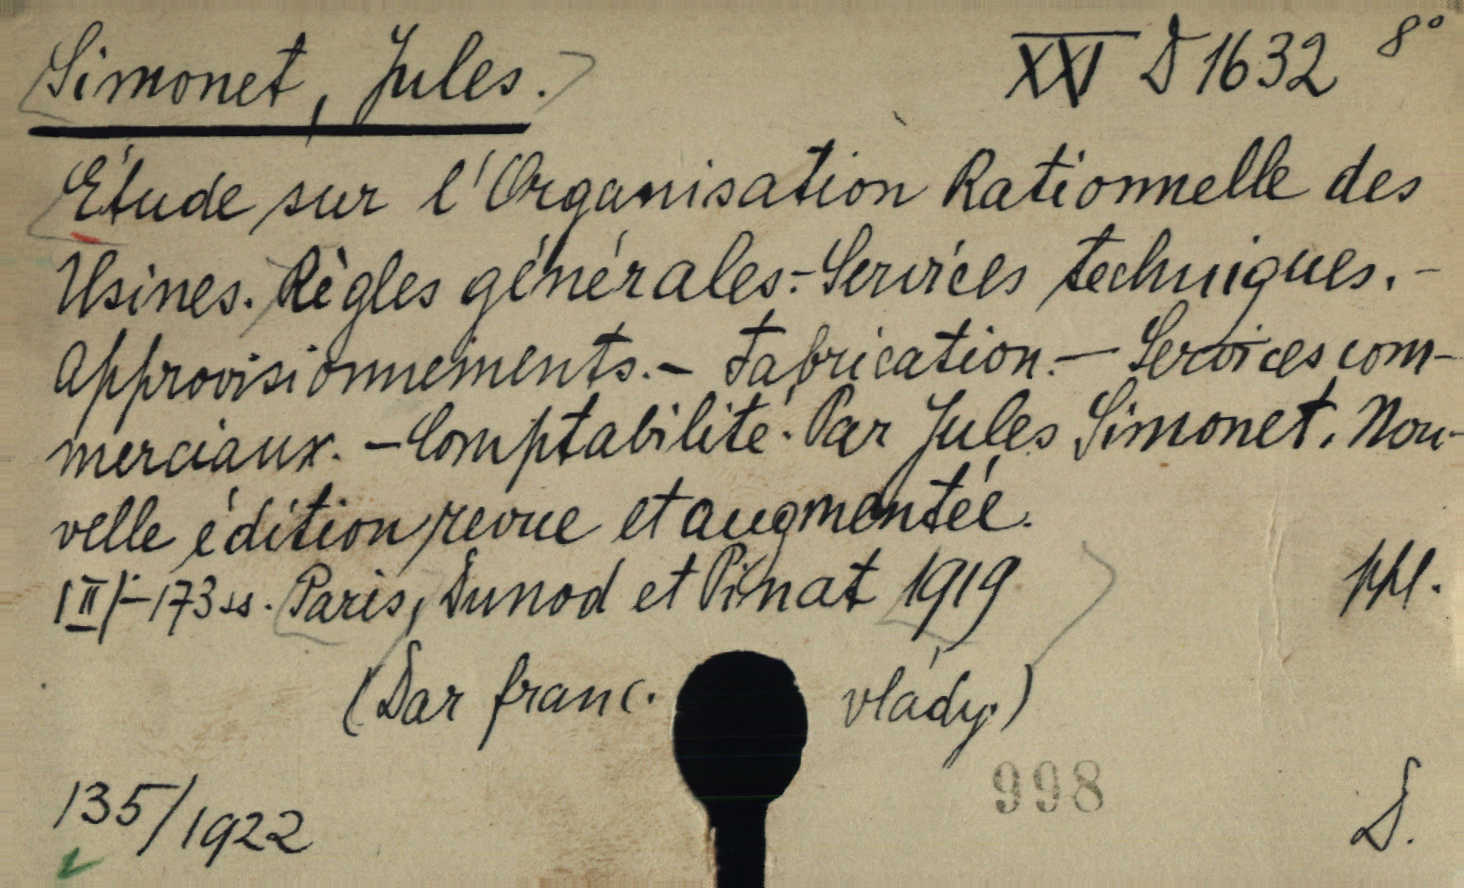 Simonet, Jules.
XXI D 1632 8°
Étude sur l'Organisation Rationnelle des
Usines. Règles générales.-Services techniques.-
Approvisionnements.- Fabrication.- Services com-
merciaux.-Comptabilité. Par Jules Simonet. Nou-
velle édition revue et augmentée.
173 ss. Paris, Dunod et Pinat 1919
ppl.
(Dar franc. vlády.)
998
135/1922
D.